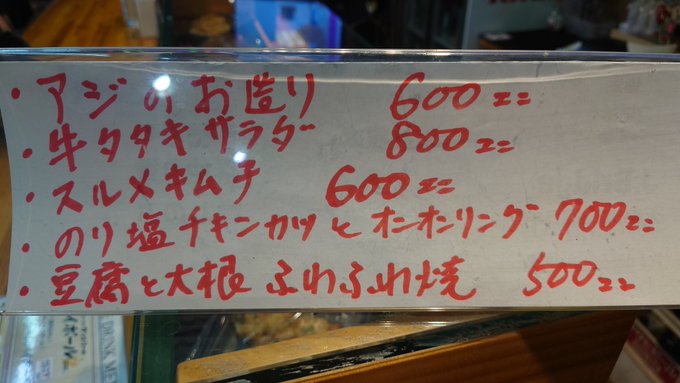 ・アジのお造り 600ニニ
・牛タタキサラダ 800ニニ
・スルメキムチ 600ニニ
・のり塩チキンカツとオニオンリング 700ニニ
・豆腐と大根ふわふわ焼 500ニニ
イボール
DRINK ME